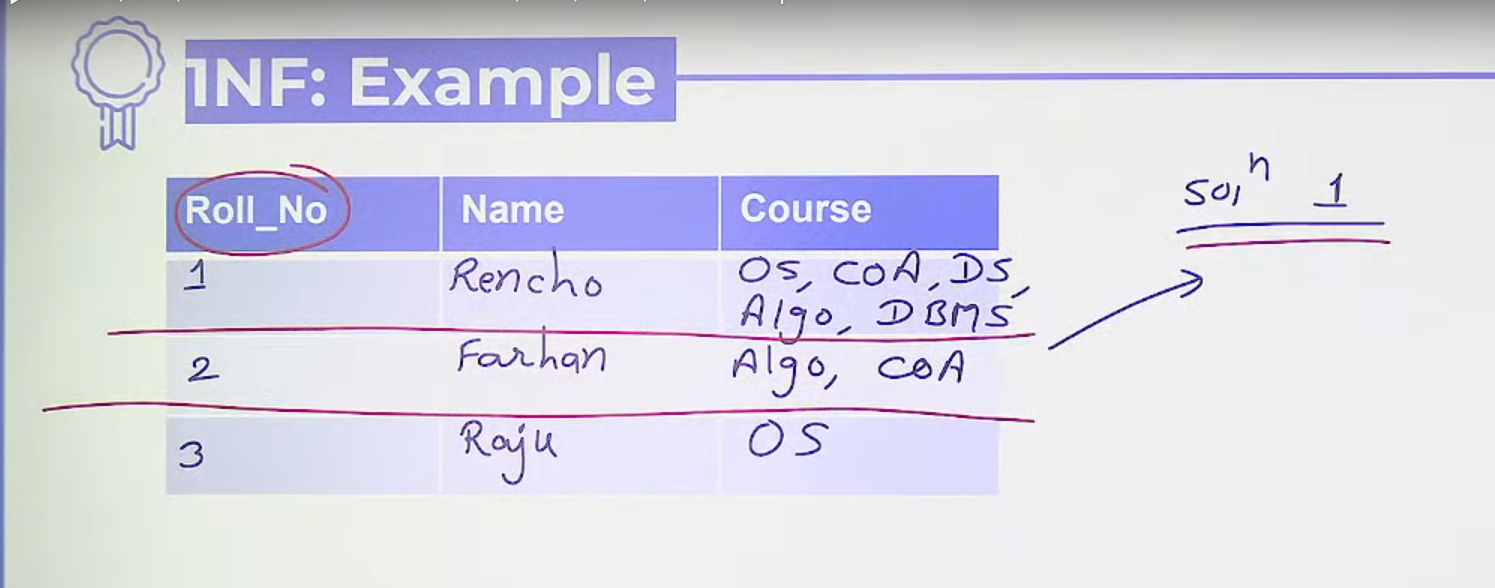 1NF: Example
Soln 1
Roll_No Name Course
1 Rencho OS, COA, DS,
Algo, DBMS
2 Farhan Algo, COA
3 Raju OS